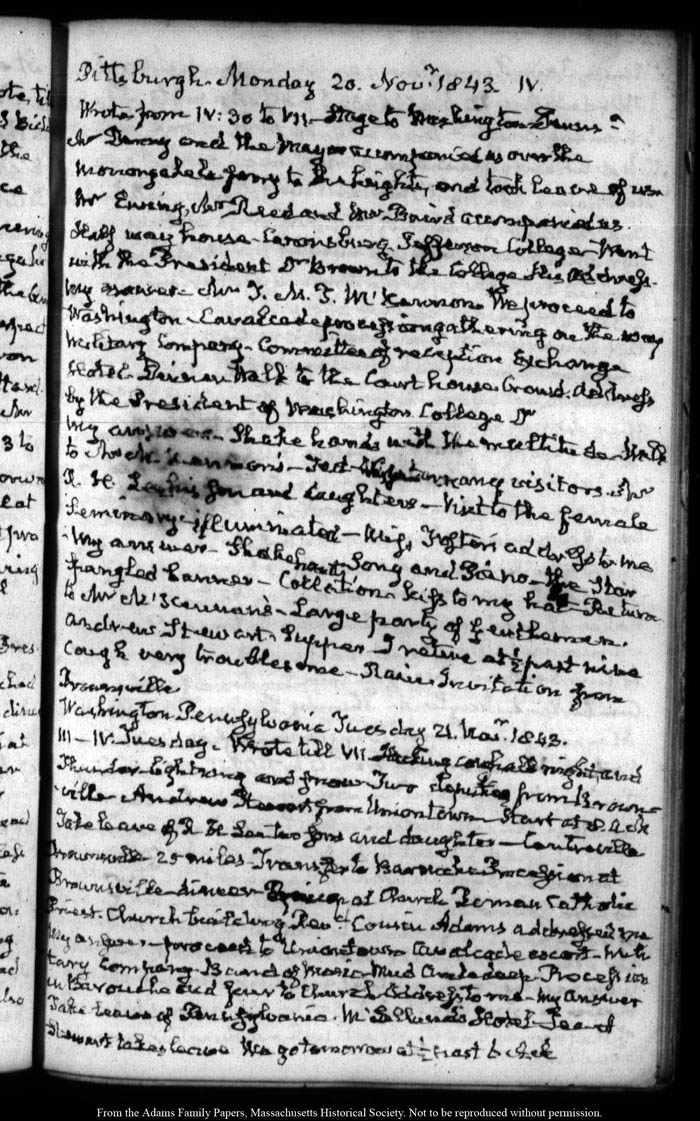 Pittsburgh. Monday 20. Novr. 1843. IV.
Wrote from IV:30 to VII. Stage to Washington
Mr Denny and the Mayor accompanied us over the
Monongahela ferry to the heights, and took leave of us
Mr Ewing, Mr Reed and Mr Baird accompanied us.
Half way house — Canonsburg, Jefferson College — Went
with the President Dr Brown to the College his address.
My answer. Mr T. M. T. McKennon. We proceed to
Washington — Cavalcade procession gathering on the way
Military Company — Committee of reception Exchange
Hotel. Dinner Walk to the Court house Crowd. Address
by the President of Washington College Dr
My answer — Shake hands with the multitude — Walk
to Mr McKennon's — Tea many visitors. Mr
R. H. Lee his son and daughters — Visit to the female
Seminary — illuminated — Miss Foster's address to me
My answer — Shake hands Song and Piano — the Star
spangled banner — Collation kiss to my hat Return
to Mr McKennan's — Large party of Gentlemen.
Andrew Stewart. Supper I retire at ½ past nine
Cough very troublesome — Rain. Invitation from
Brownsville.
Washington Pennsylvania Tuesday 21. Novr. 1843.
III — IV. Tuesday. Wrote till VII. cough all night, and
Thunder lightning and snow Two deputies from Browns-
ville Andrew Stewart from Uniontown — Start at 8. A clk
Take leave of R H Lee two sons and daughter — Centreville
Brownsville 25 miles — Transfer to Barouche Procession at
Brownsville — dinner at Church Roman Catholic
Priest. Church building Revd. Cousin Adams addressed me
My answer — proceed to Uniontown Cavalcade escort — Mili-
tary Company — Band of Music Mud ancle deep. Procession
in Barouche and four to Church Address to me — My answer
Take leave of Pennsylvania. McClelland's Hotel — Tea
Stewart takes leave We go tomorrow at ½ past 6 clk
From the Adams Family Papers, Massachusetts Historical Society. Not to be reproduced without permission.